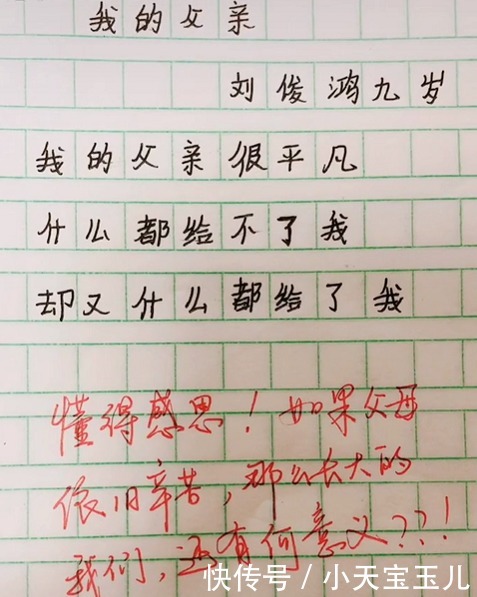 我的父亲
刘俊鸿九岁
我的父亲很平凡
什么都给不了我
却又什么都给了我
懂得感恩！如果父母
依旧辛苦，那么长大的
我们，还有何意义??!
快传号／小天宝玉儿